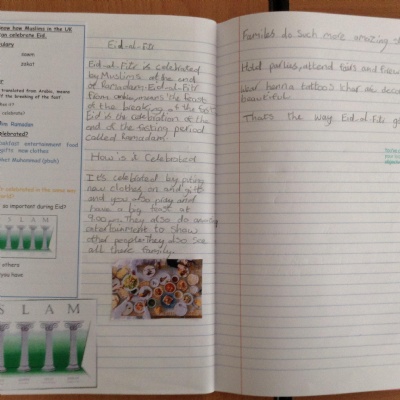 know how Muslims in the UK
can celebrate Eid.
sawm
zakat
translated from Arabic, means
the breaking of the fast
celebrate?
Ramadan
celebrated?
breakfast entertainment food
gifts new clothes
Muhammad (pbuh)
celebrated in the same way
so important during Eid?
S L A M
others
S L A M
Eid-al-Fitr
Eid-al-Fitr is celebrated
by Muslims at the end
of Ramadan. Eid-al-Fitr
means the feast
of the breaking of the fast
Eid is the celebration of the
end of the fasting period
called Ramadan.
How is it Celebrated
It's celebrated by puting
new clothes on and gifts
and you also pray and
have a big feast at
9:00pm. They also do amazing
entertainment to show
other people. They also see
all there family.
Familes do such more amazing
Hold parties, attend fairs and
Wear henna tattoos that are
beautiful.
That's the way Eid-al-Fitr